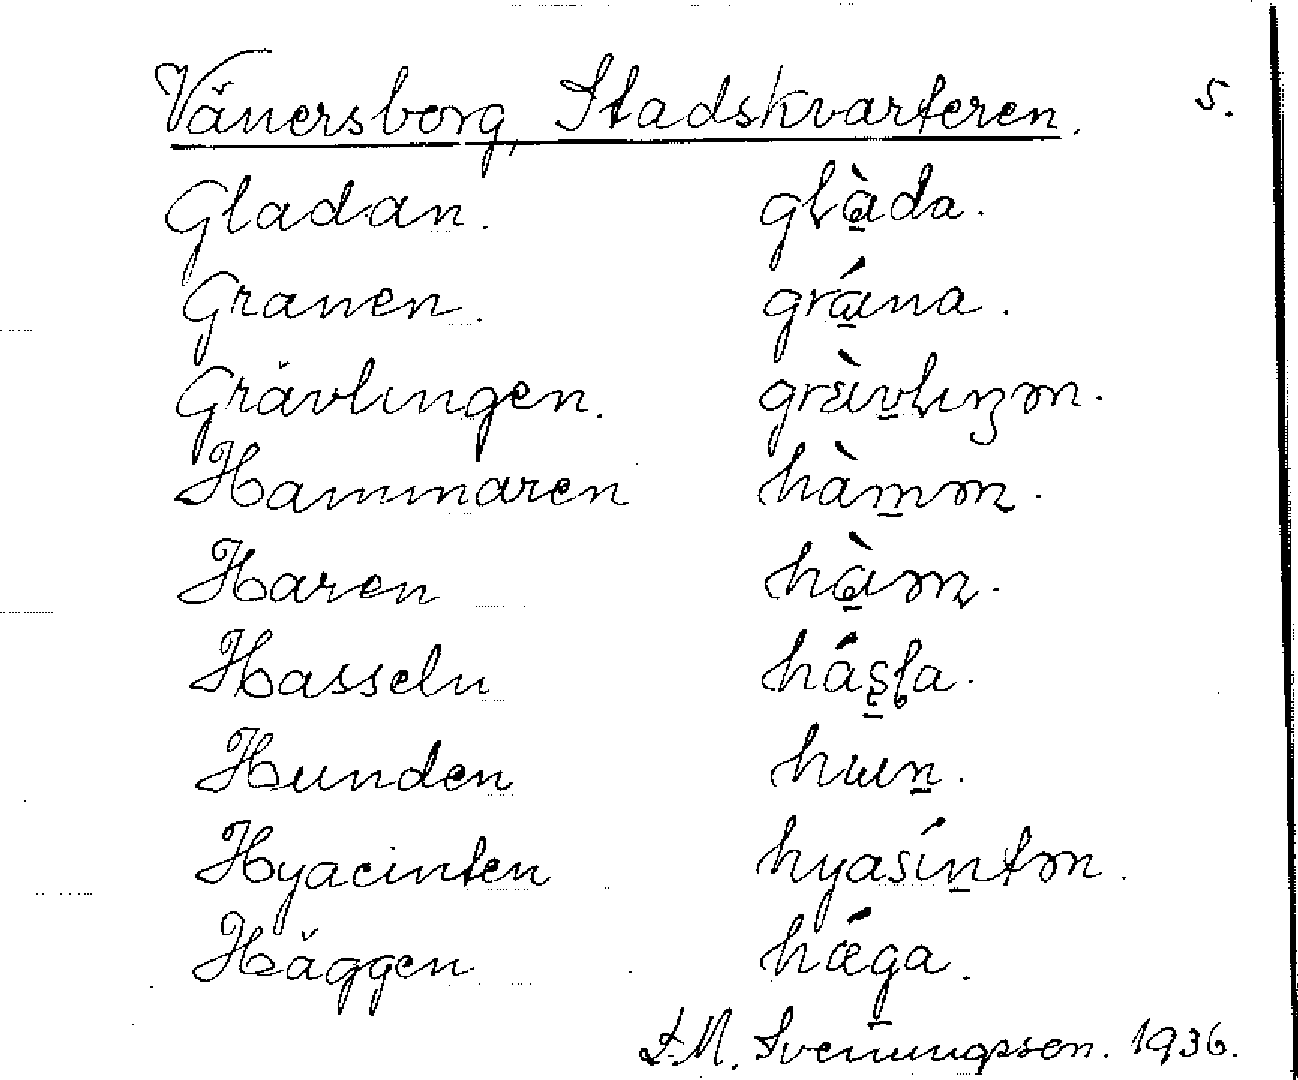 Vänersborg, Stadskvarteren. 5.
Gladan. glàda.
Granen. grána.
Grävlingen. grὲvlıŋən.
Hammaren hàmən.
Haren hàrən.
Hasseln hásla.
Hunden hɯn.
Hyacinten hyasíntən.
Häggen hǽga.
Svenungsson. 1936.